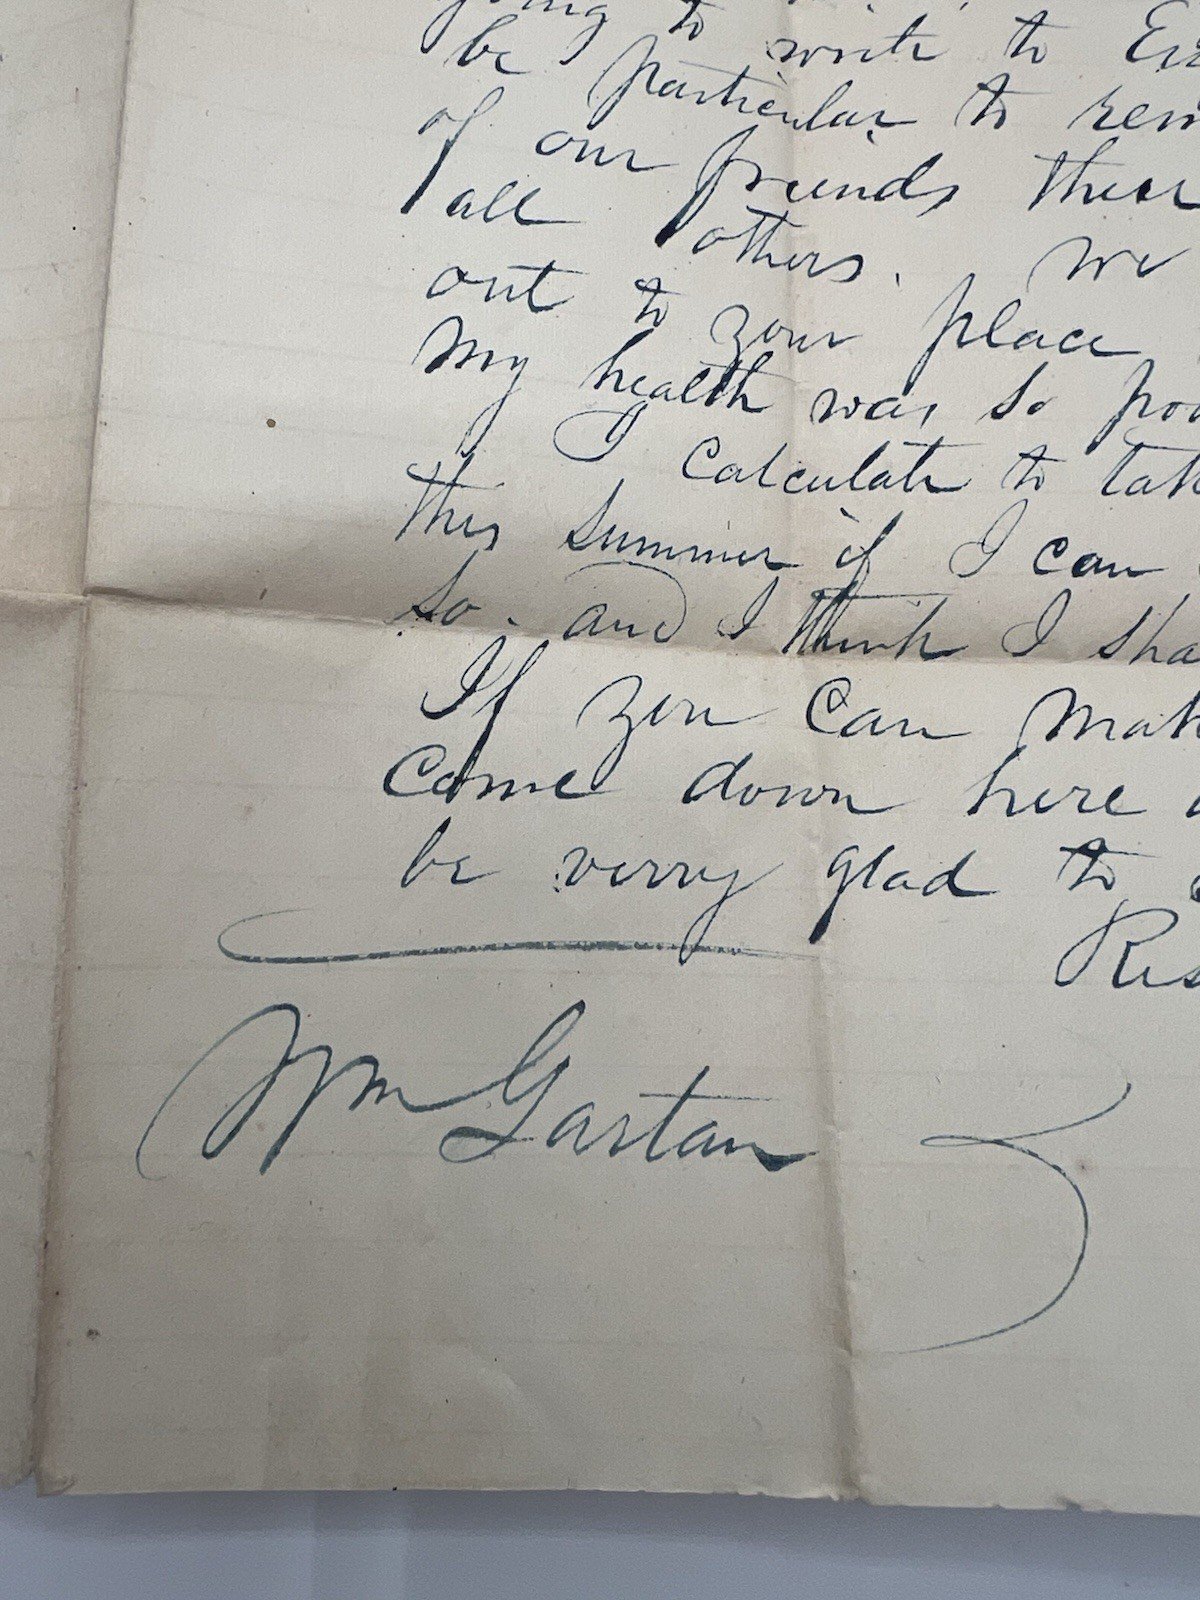 going to
be write to
be particular to rem
of our friends there
all others. We
out to your place
My health was so poo
I calculate to tak
this summer if I can
so. and I think I sha
If you can mak
Come down here
be verry glad to
Res
Wm Gartan